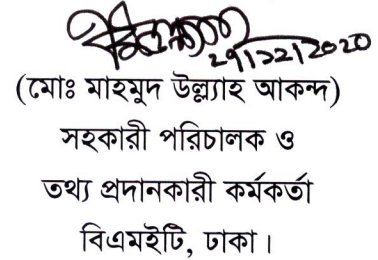 ২৭/১২/২০২০
(মোঃ মাহমুদ উল্ল্যাহ আকন্দ)
সহকারী পরিচালক ও
তথ্য প্রদানকারী কর্মকর্তা
বিএমইটি, ঢাকা।